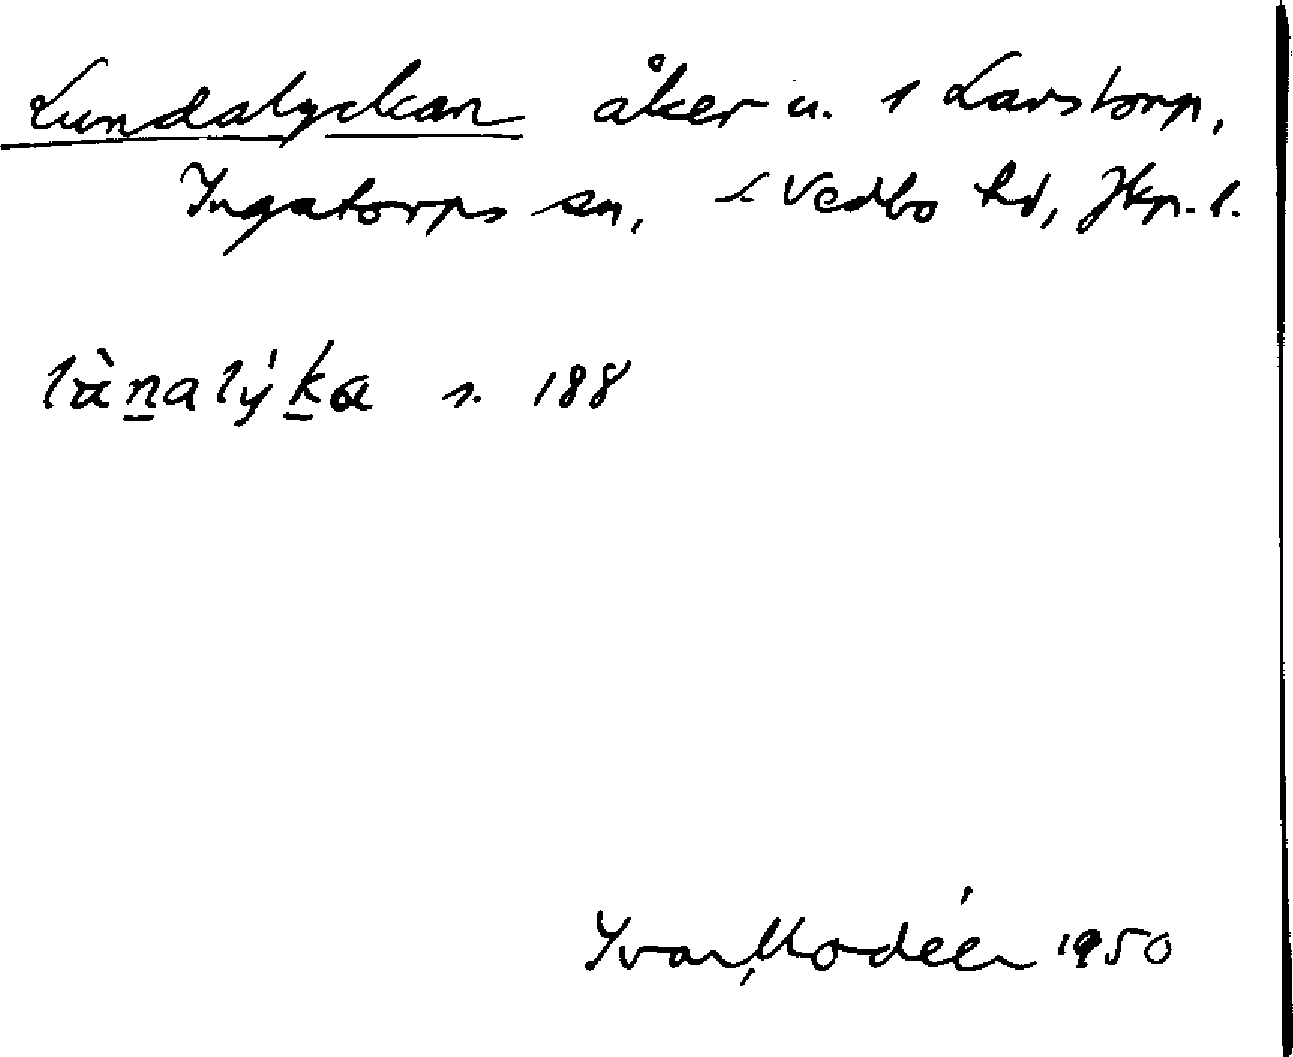 Lundalyckan åker u. 1 Larstorp,
Ingatorps sn, S Vedbo hd, Jkp. l.
lùn̲alýk̲a s. 188
Ivar Modéer 1950